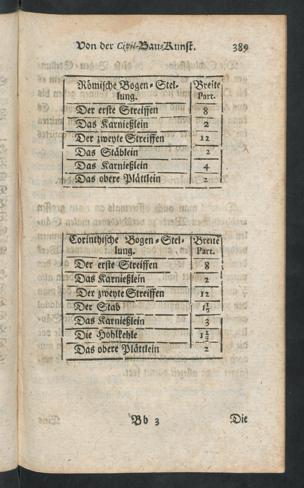 Von der Civil-Bau-Kunst. 389
Römische Bogen-Stel- Breite
lung. Part.
Der erste Streiffen 8
Das Karnießlein 2
Der zweyte Streiffen 12
Das Stäblein 2
Das Karnießlein 4
Das obere Plättlein 2
Corinthische Bogen-Stel- Breite
lung. Part.
Der erste Streiffen 8
Das Karnießlein 2
Der zweyte Streiffen 12
Der Stab
Das Karnießlein 3
Die Hohlkehle 1½
Das obere Plättlein 2
Bb 3 Die